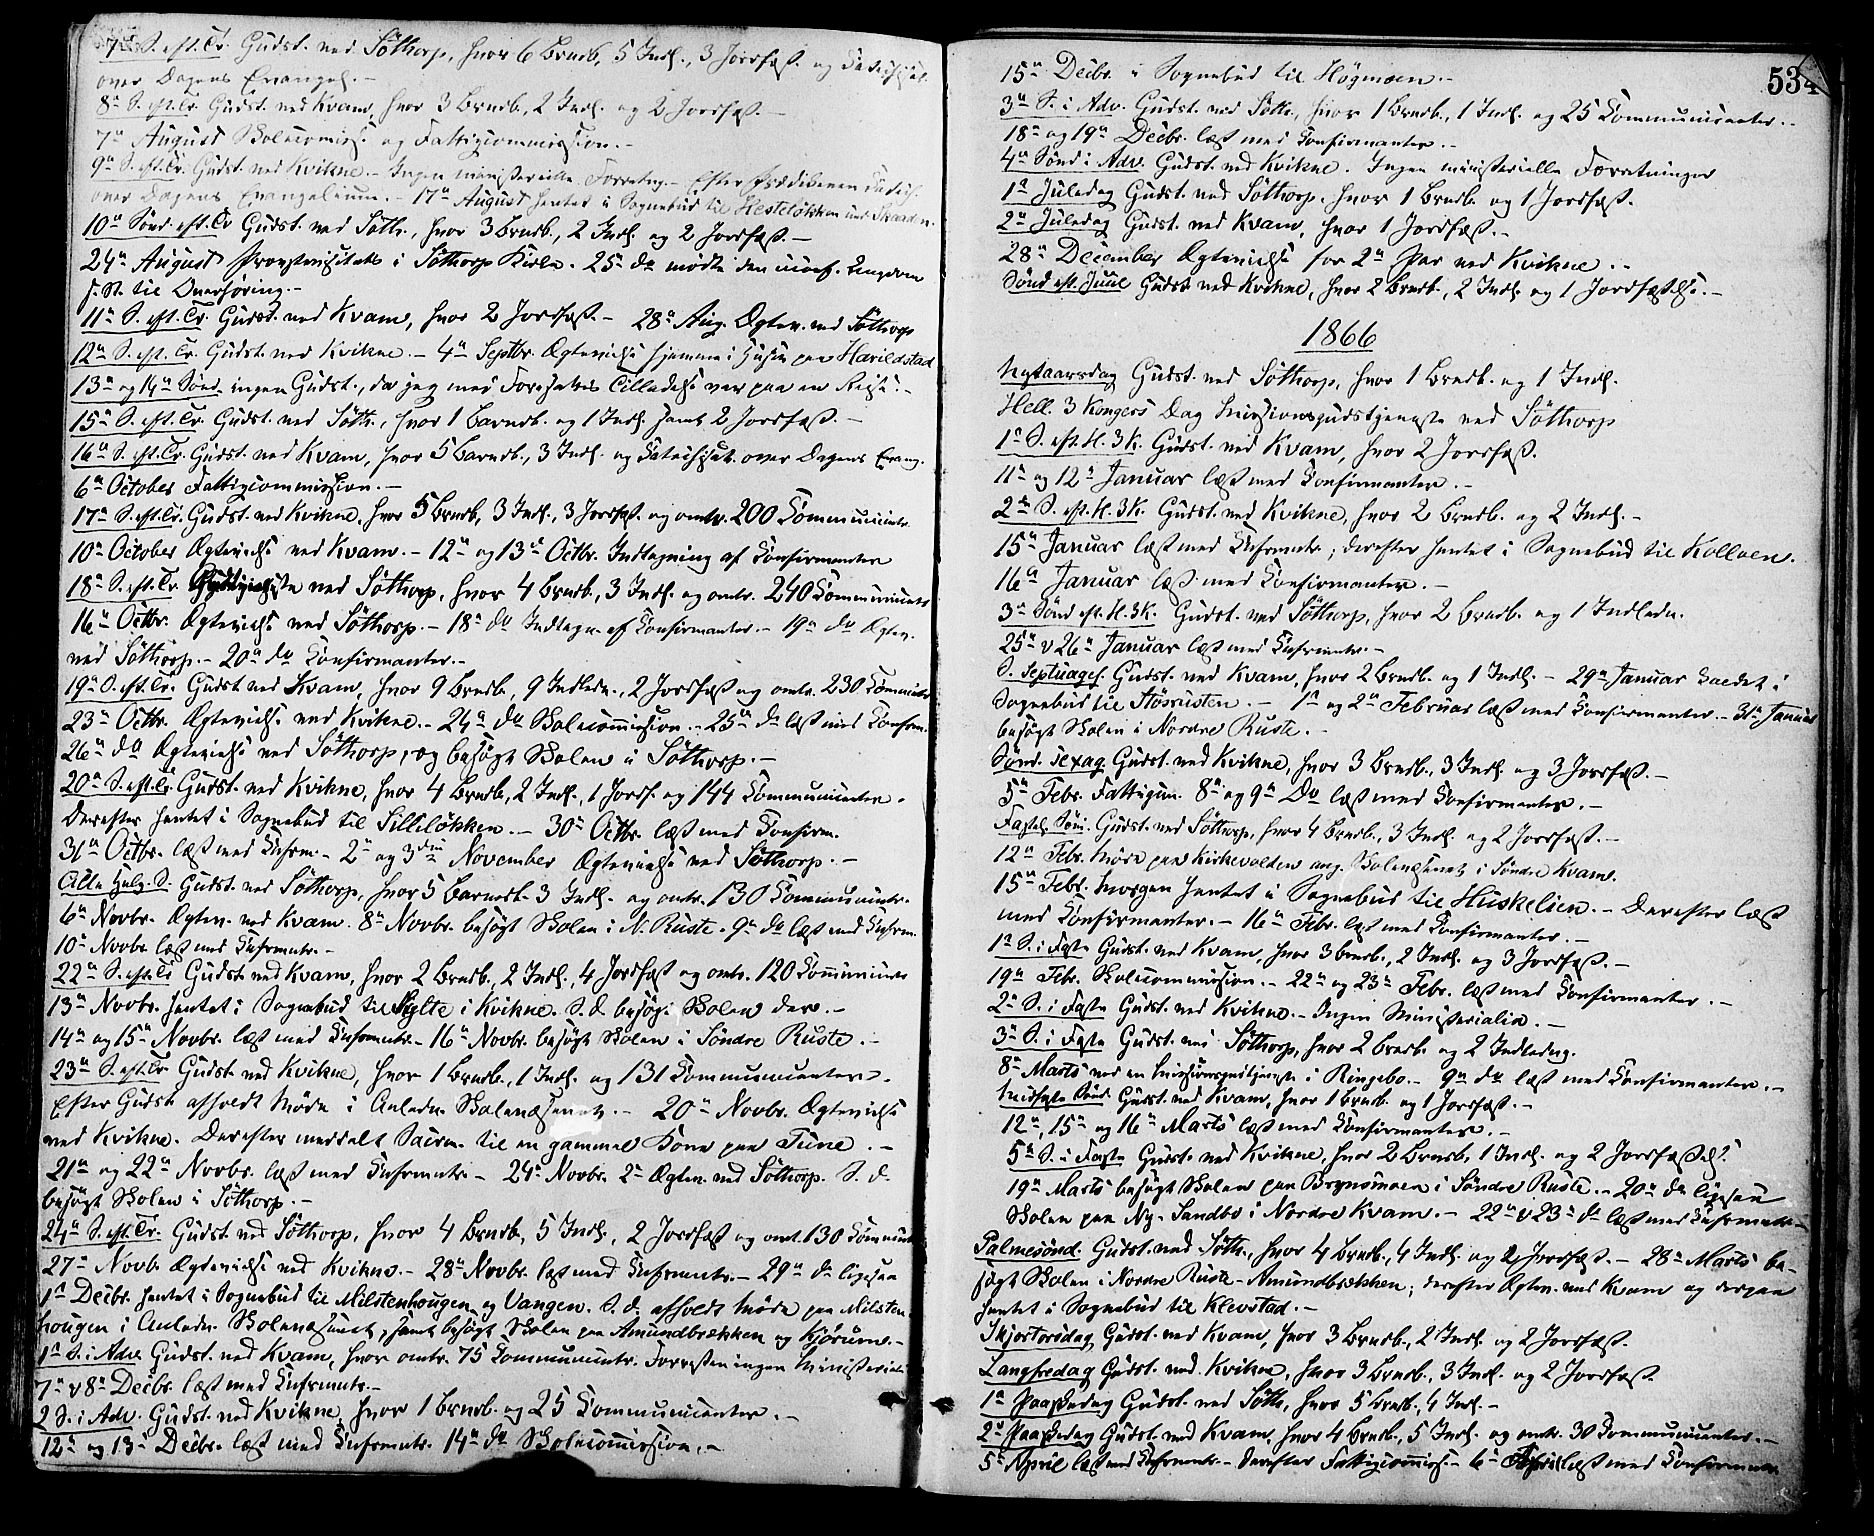 7de S. eft. Tr. Gudst. ved Söthorp, hvor 6 Brnedb., 5 Indl., 3 Jordfæst. og Catechisat.
over Dagens Evangel. -
8de S. eft. Tr. Gudst. ved Kvam, hvor 3 Brnedb., 2 Indl. og 2 Jordfæst. -
7de August Skolecomiss. og Fattigcommission. -
9de S. eft. Tr. Gudst. ved Kvikne. - Ingen ministerielle Forretng. - Efter Prædikenen Catech.
over Dagens Evangelium. - 17de August hentet i Sognebud til Hesteløkken und. Skaaden.
10de Sönd. eft. Tr. Gudst. ved Söth., hvor 3 Brnedb., 2 Indl. og 2 Jordfæst. -
24de August Provstevisitats i Söthorp Kirke. 25de do mødte den Ungdom
til Overhøring. -
11de S. eft. Tr. Gudst. ved Kvam, hvor 2 Jordfæst. - 28de Aug. Ægtev. ved Söthorp
12de S. eft. Tr. Gudst. ved Kvikne. - 4de Septbr. Ægtevielse hjemme i Huset paa Harildstad
13de og 14de Sönd. ingen Gudst., da jeg med Foresattes Tilladelse var paa en Reise. -
15de S. eft. Tr. Gudst. ved Söth., hvor 1 Barnedb. og 1 Indl. samt 2 Jordfæst. -
16de S. eft. Tr. Gudst. ved Kvam, hvor 5 Barnedb., 3 Indl. og Catechisat. over Dagens Evang.
6te October Fattigcommission. -
17de S. eft. Tr. Gudst. ved Kvikne, hvor 5 Brnedb., 3 Indl., 3 Jordfæst. og omtr. 200 Communicntr.
10de October Ægtevielse ved Kvam. - 12te og 13de Octbr. Indtegning af Confirmanter
18de S. eft. Tr. Gudstjeneste ved Söthorp, hvor 4 Brnedb., 3 Indl. og omtr. 240 Communicntr
16de Octbr. Ægtevielse ved Söthorp. - 18de do Indtegn. af Confirmanter. - 19de do Ægtev.
ved Söthorp. - 20de do Confirmanter. -
19de S. eft. Tr. Gudst. ved Kvam, hvor 9 Brnedb., 9 Indledn., 2 Jordfæst og omtr. 230 Communicntr
23de Octbr. Ægtevielse ved Kvikne. - 24de do Skolecommission. - 25de do læst med Confirm.
26de do Ægtevielse ved Söthorp, og besøgt Skolen i Söthorp. -
20de S. eft. Tr. Gudst. ved Kvikne, hvor 4 Brnedb., 2 Indl., 1 Jordf. og 144 Communicanter.
Derefter hentet i Sognebud til Silliløkken. - 30te Octbr. læst med Confirm.
31te Octbr. læst med Cnfrm. - 2de og 3die November Ægtevielse ved Söthorp. -
Alle Helg. S. Gudst. ved Söthorp, hvor 5 Barnedb. 3 Indl. og omtr. 130 Communicntr.
6te Novbr. Ægtev. ved Kvam. 8de Novbr. besøgt Skolen i N. Ruste. 9de do læst med Cnfrm.
10de Novbr. læst med Cnfrmntr. -
22de S. eft. Tr. Gudst. ved Kvam, hvor 2 Brnedb., 2 Indl., 4 Jordfæst og omtr. 120 Communicntr
13de Novbr. hentet i Sognebud til Sylte i Kvikne. S. d. besøgt Skolen der. -
14de og 15de Novbr. læst med Cnfrmntr. - 16de Novbr. besøgt Skolen i Söndre Ruste. -
23de S. eft. Tr. Gudst. ved Kvikne, hvor 1 Brnedb., 1 Indl. og 131 Communicanter.
Efter Gudst. afholdt Møde i Anledn. Skolevæsenet. - 20de Novbr. Ægtevielse
ved Kvikne. Derefter meddelt Sacrm. til en gammel Kone paa Tune. -
21de og 22de Novbr. læst med Cnfrmntr. - 24de Novbr. 2de Ægtev. ved Söthorp. S. d.
besøgt Skolen i Söthorp. -
24de S. eft. Tr. Gudst. ved Söthorp, hvor 4 Brnedb., 5 Indl., 2 Jordfæst og omt. 130 Communicnt
27de Novb. Ægtevielse ved Kvikne. - 28de Novbr. læst med Cnfrmntr. - 29de do ligesaa
1ste Decbr. hentet i Sognebud til Milstenhougen og Vangen. S. d. afholdt Møde paa Milsten-
hougen i Anledn. Skolevæsenet, samt besøgt Skolen paa Amundbrækken og Kjörum. -
1ste S. i Adv. Gudst. ved Kvam, hvor omtr. 75 Communicntr. Forresten ingen Ministerial.
7de & 8de Decbr. læst med Cnfrmntr. -
2 S. i Adv. Gudst. ved Kvikne, hvor 1 Brnedb. og 25 Communicanter. -
12te og 13de Decbr. læst med Cnfrmntr. 14de do Skolecommission. -
534
15de Decbr. i Sognebud til Høgmoen. -
3die S. i Adv. Gudst. ved Söth., hvor 1 Brnedb., 1 Indl. og 25 Communicanter. -
18de og 19de Decbr. læst med Confirmanter. -
4de Sönd. i Adv. Gudst. ved Kvikne. Ingen ministerielle Forretninger
1ste Juledag Gudst. ved Söthorp, hvor 1 Brnedb. og 1 Jordfæst.
2den Juledag Gudst. ved Kvam, hvor 1 Jordfæst. -
28de December Ægtevielse for 2de Par ved Kvikne. -
Sönd. eft. Juul Gudst. ved Kvikne, hvor 2 Brnedb., 2 Indl. og 1 Jordfæstelse. -
1866
Nytaarsdag Gudst. ved Söthorp, hvor 1 Brnedb. og 1 Indl.
Hell. 3 Kongers Dag Missionsgudstjeneste ved Söthorp
1ste S. eft. H. 3 K. Gudst. ved Kvam, hvor 2 Jordfæst.
11te og 12te Januar læst med Confirmanter. -
2den S. eft. H. 3 K. Gudst. ved Kvikne, hvor 2 Brnedb. og 2 Indl. -
15de Januar læst med Cnfrmntr.; derefter hentet i Sognebud til Kolloen.
16de Januar læst med Confirmanter. -
3die Sönd. eft. H. 3 K. Gudst. ved Söthorp, hvor 2 Brnedb. og 1 Indledn.
25de & 26de Januar læst med Cnfrmntr. -
S. Septuages. Gudst. ved Kvam, hvor 2 Brnedb. og 1 Indl. - 29de Januar kaldet i
Sognebud til Hösrusten. - 1ste og 2den Februar læst med Confirmanter. - 31te Januar
besøgt Skolen i Nordre Ruste. -
Sönd. Sexag. Gudst. ved Kvikne, hvor 3 Brnedb., 3 Indl. og 3 Jordfæst. -
5te Febr. Fattigcm. 8de og 9de do læst med Confirmanter. -
Fastel. Sönd. Gudst. ved Söthorp, hvor 4 Brnedb., 3 Indl. og 2 Jordfæst. -
12te Febr. Møde paa Kirkevolden ang. Skolevæsenet i Söndre Kvam.
15de Febr. Morgen hentet i Sognebud til Huskelien. - Derefter læst
med Confirmanter. - 16de Febr. læst med Confirmanter. -
1ste S. i Faste Gudst. ved Kvam, hvor 3 Brnedb., 2 Indl. og 3 Jordfæst. -
19de Febr. Skolecommission. - 22de og 23de Febr. læst med Confirmanter. -
2den S. i Faste Gudst. ved Kvikne. - Ingen Ministerialia. -
3die S. i Faste Gudst. ved Söthorp, hvor 2 Brnedb. og 2 Indledng.
8de Marts ved en Missionsgudstjeneste i Ringebo. - 9de do læst med Confirmanter. -
Midfaste Sönd. Gudst. ved Kvam, hvor 1 Brnedb. og 1 Jordfæst. -
12te, 15de og 16de Marts læst med Confirmanter. -
5te S. i Faste Gudst. ved Kvikne, hvor 2 Brnedb., 1 Indl. og 2 Jordfæstels.
19de Marts besøgt Skolen paa Brynsmoen i Söndre Ruste. - 20de do ligesaa
Skolen paa Ny-Sandbo i Nordre Kvam. - 22de & 23de do læst med Cnfrmntr. -
Palmesönd. Gudst. ved Söth., hvor 4 Brnedb., 4 Indl. og 2 Jordfæst. - 28de Marts be-
søgt Skolen i Nordre Ruste - Amundbrækken; derefter Ægtev. ved Kvam og derpaa
hentet i Sognebud til Klevstad. -
Skjertorsdag Gudst. ved Kvam, hvor 3 Brnedb., 2 Indl. og 2 Jordfæst.
Langfredag Gudst. ved Kvikne, hvor 3 Brnedb., 3 Indl. og 2 Jordfæst.
1ste Paaskedag Gudst. ved Söth., hvor 5 Brnedb., 4 Indl. -
2den Paaskedag Gudst. ved Kvam, hvor 4 Brnedb., 5 Indl. og omtr. 30 Communicanter. -
5te April læst med Cnfrmntr. - Derefter Fattigcommiss. - 6te April læst med Confirmanter